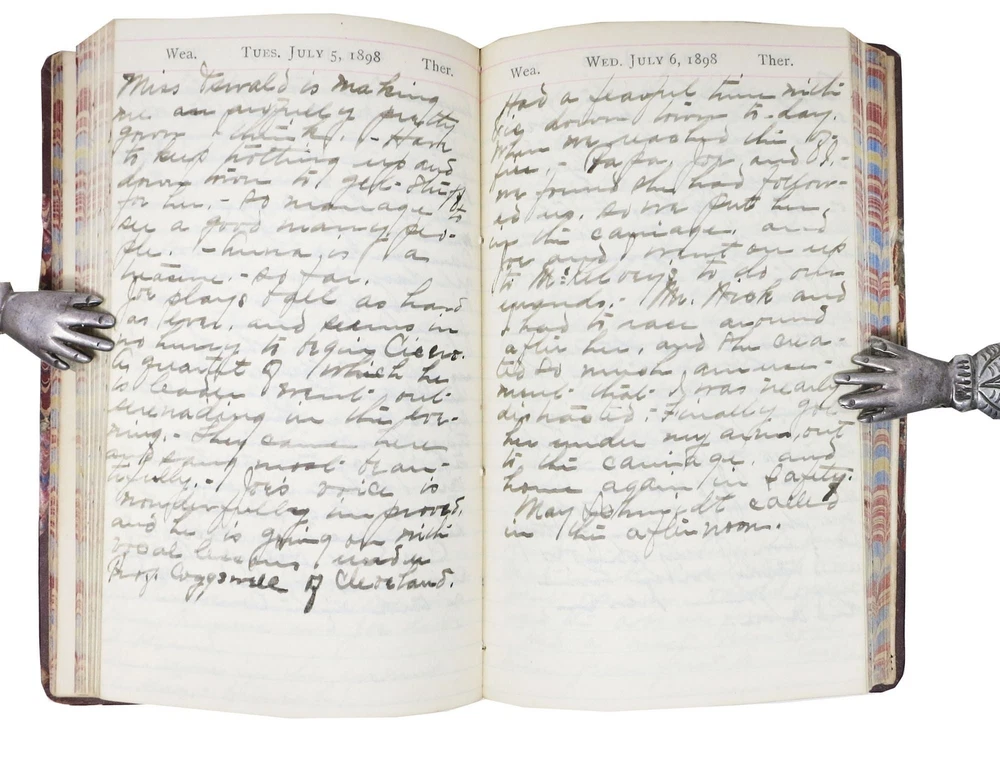 Wea. Tues. July 5, 1898 Ther.
Miss Oswald is making
me an awfully pretty
gown I think. - I Have
to keep trotting up and
down town to get stuff
for her. - So manage to
see a good many peo-
ple. - Anna is a
treasure. - So far.
Joe plays ball as hard
as ever, and seems in
no hurry to begin Cicero.
A quartet of which he
is leader went out
serenading in the eve-
ning. - They came here
and sang most beau-
tifully. - Joe's voice is
wonderfully improved,
and he is going on with
vocal lessons under
Prof. Coggswell of Cleveland.
Wea. Wed. July 6, 1898 Ther.
Had a fearful time with
down town to-day.
When we reached the of-
fice, - Papa, Joe, and I. -
we found she had follow-
ed us, so we put her,
in the carriage, and
Joe and I went on up
to McIlroy's to do our
errands. - Mr. and
I had to race around
after her, and she crea-
ted so much amuse-
ment that I was nearly
distracted. - Finally got
her under my arm, out
to the carriage, and
home again in safety.
May Schmidt called
in the afternoon.